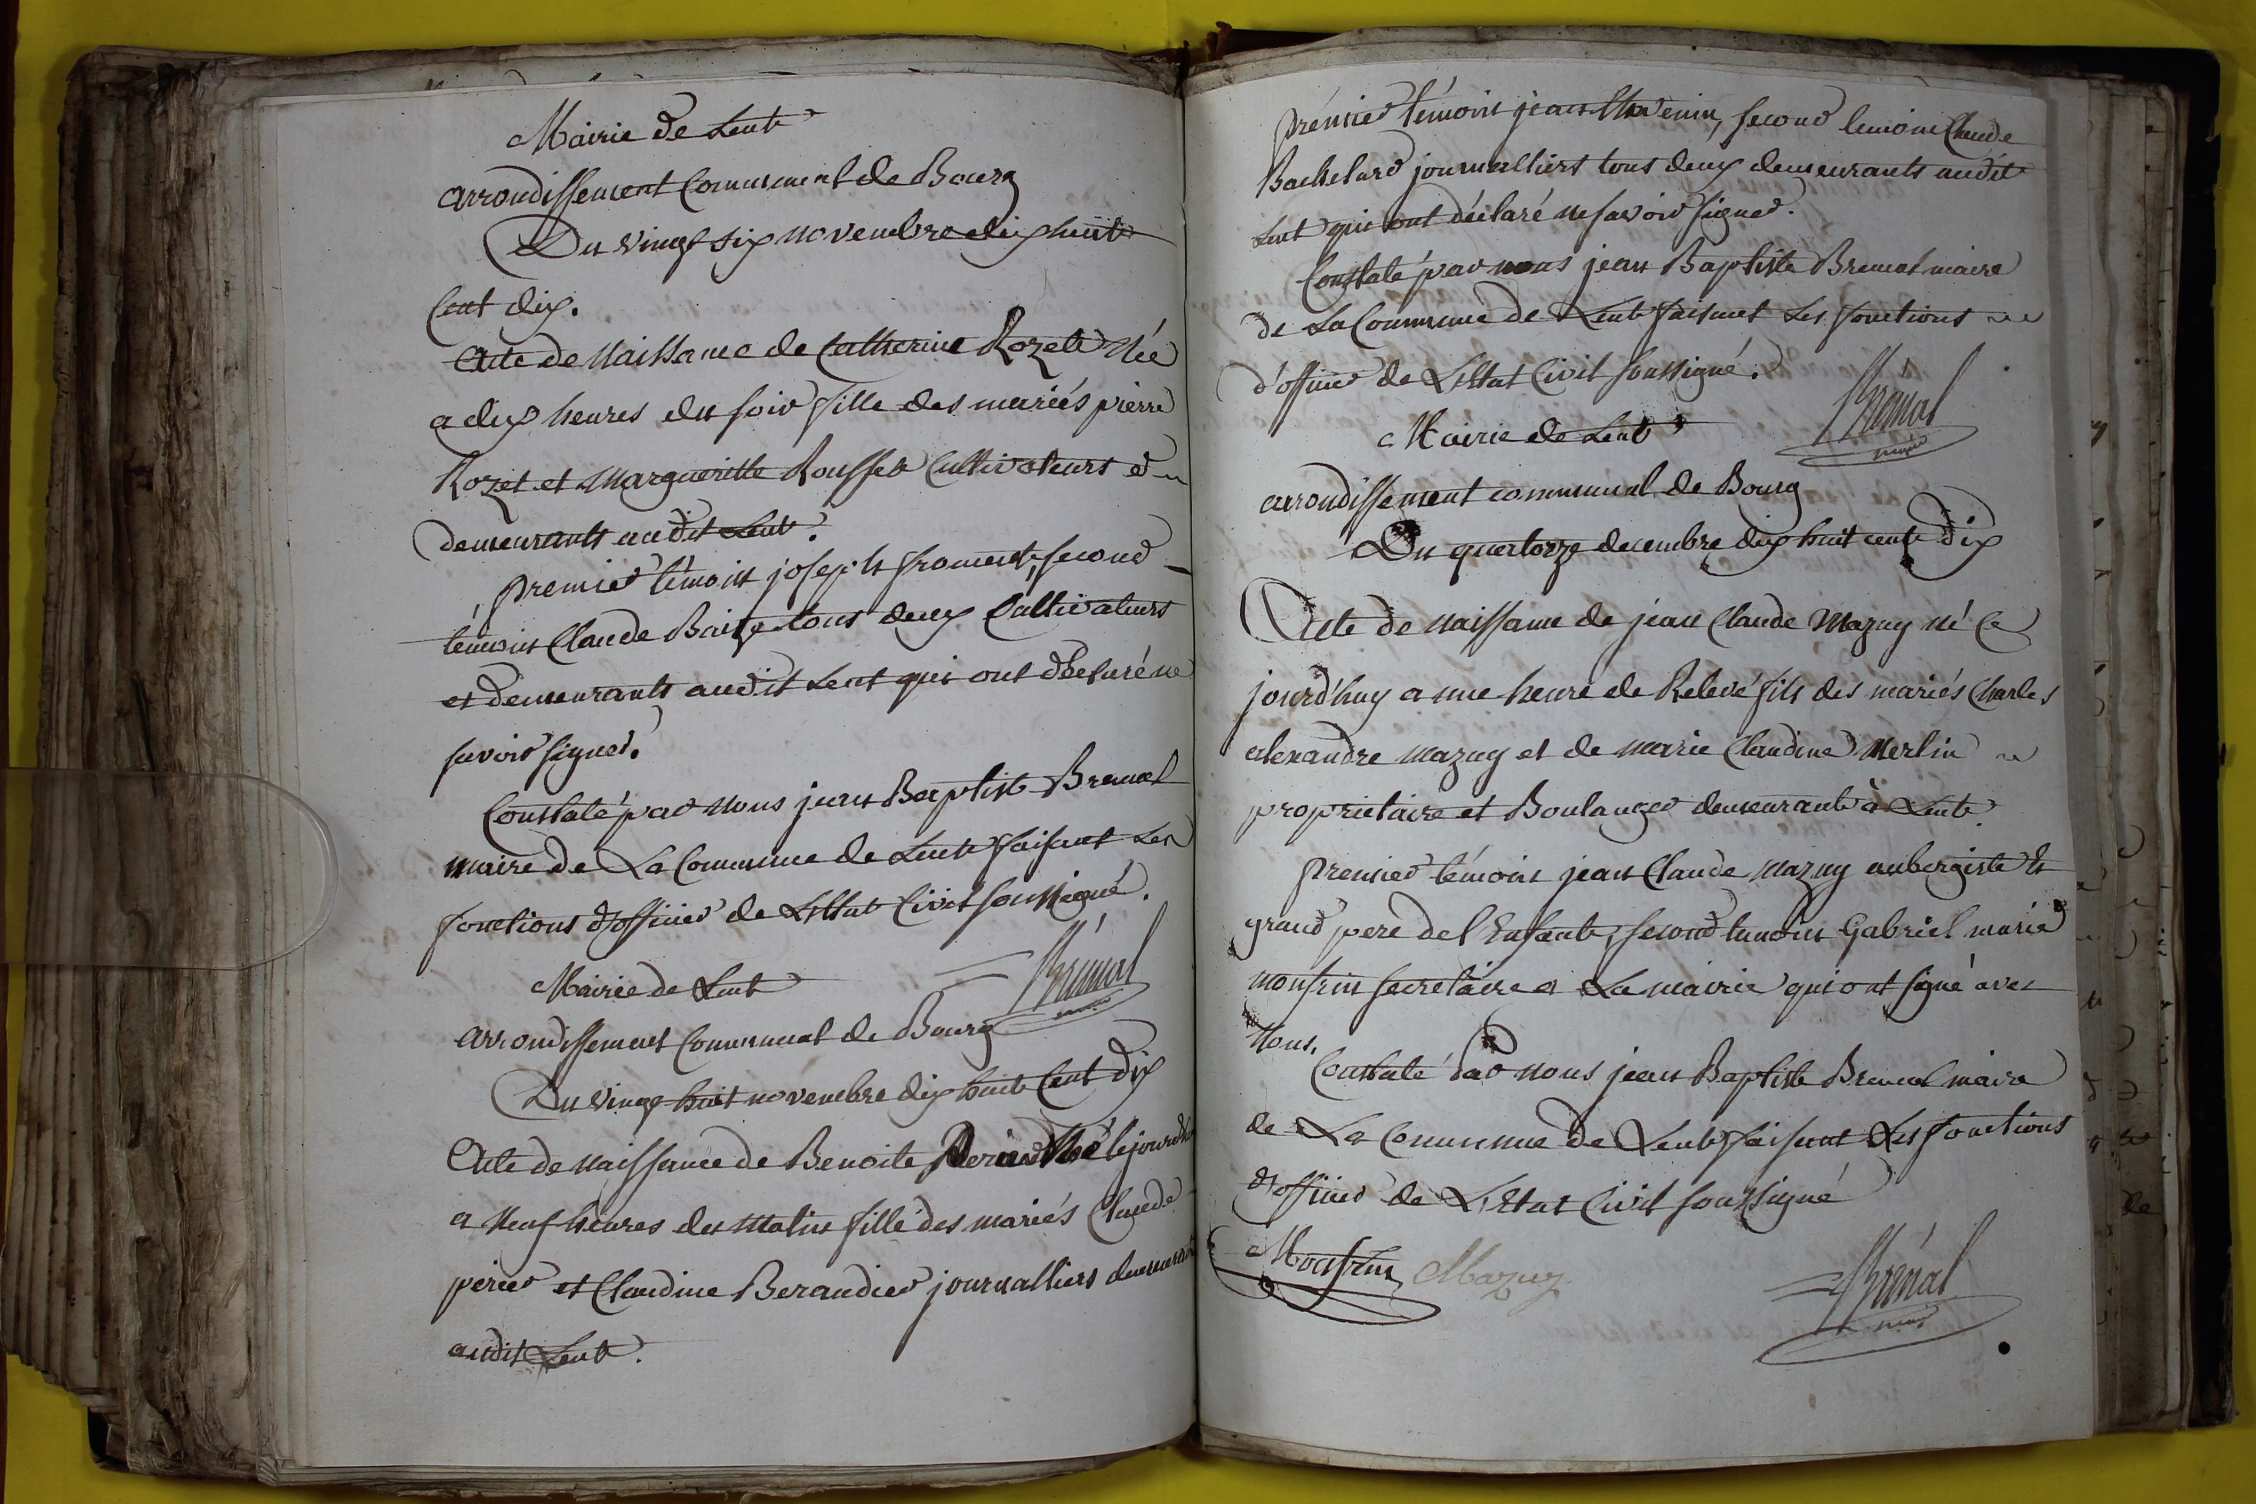 Mairie de Lent
arrondissement Communal de Bourg
Du vingt six novembre dix huit
Cent dix.
Acte de Naissance de Catherine Rozet Née
a dix heures du soir fille des mariés pierre
Rozet et Margueritte Rousset Cultivateurs et
demeurants audit Lent.
premier témoin joseph froment, second
témoin Claude Baize tous deux Cultivateurs
et demeurants audit Lent qui ont déclaré ne
savoir signer.
Constaté par Nous jean Baptiste Bremal
maire de La Commune de Lent faisant Les
fonctions d'officier de L'Etat Civil soussigné.
Brémal
maire
Mairie de Lent
arrondissement Communal de Bourg
Du vingt huit novembre dix huit Cent dix
Acte de naissance de Benoite Perier Née lejourd'hui
a Neuf heures du Matin fille des mariés Claude
périer et Claudine Berandier journalliers demeurant
audit Lent.
prémier témoin jean Thevenin, second témoin Claude
Bachelard journalliers tous deux demeurants audit
Lent qui ont déclaré ne savoir signer.
Constaté par nous jean Baptiste Bremal maire
de La Commune de Lent faisant Les fonctions
d'officier de L'Etat Civil soussigné.
Brémal
maire
Mairie de Lent
arrondissement communal de Bourg
Du quatorze decembre dix huit cent dix
Acte de naissance de jean Claude Mazuy né Ce
jourd'huy a une heure de Relevé fils des mariés Charles
alexandre mazuy et de marie Claudine Merlin
proprietaire et Boulanger demeurant à Lent.
premier témoin jean Claude mazuy aubergiste et
grand pere de l'Enfant, second temoin Gabriel marie
monfrin secretaire a La mairie qui ont signé avec
Nous.
Constaté par nous jean Baptiste Bremal maire
de La Commune de Lent faisant Les fonctions
d'officier de L'Etat Civil soussigné
Monfrin Mazuy
Brémal
maire